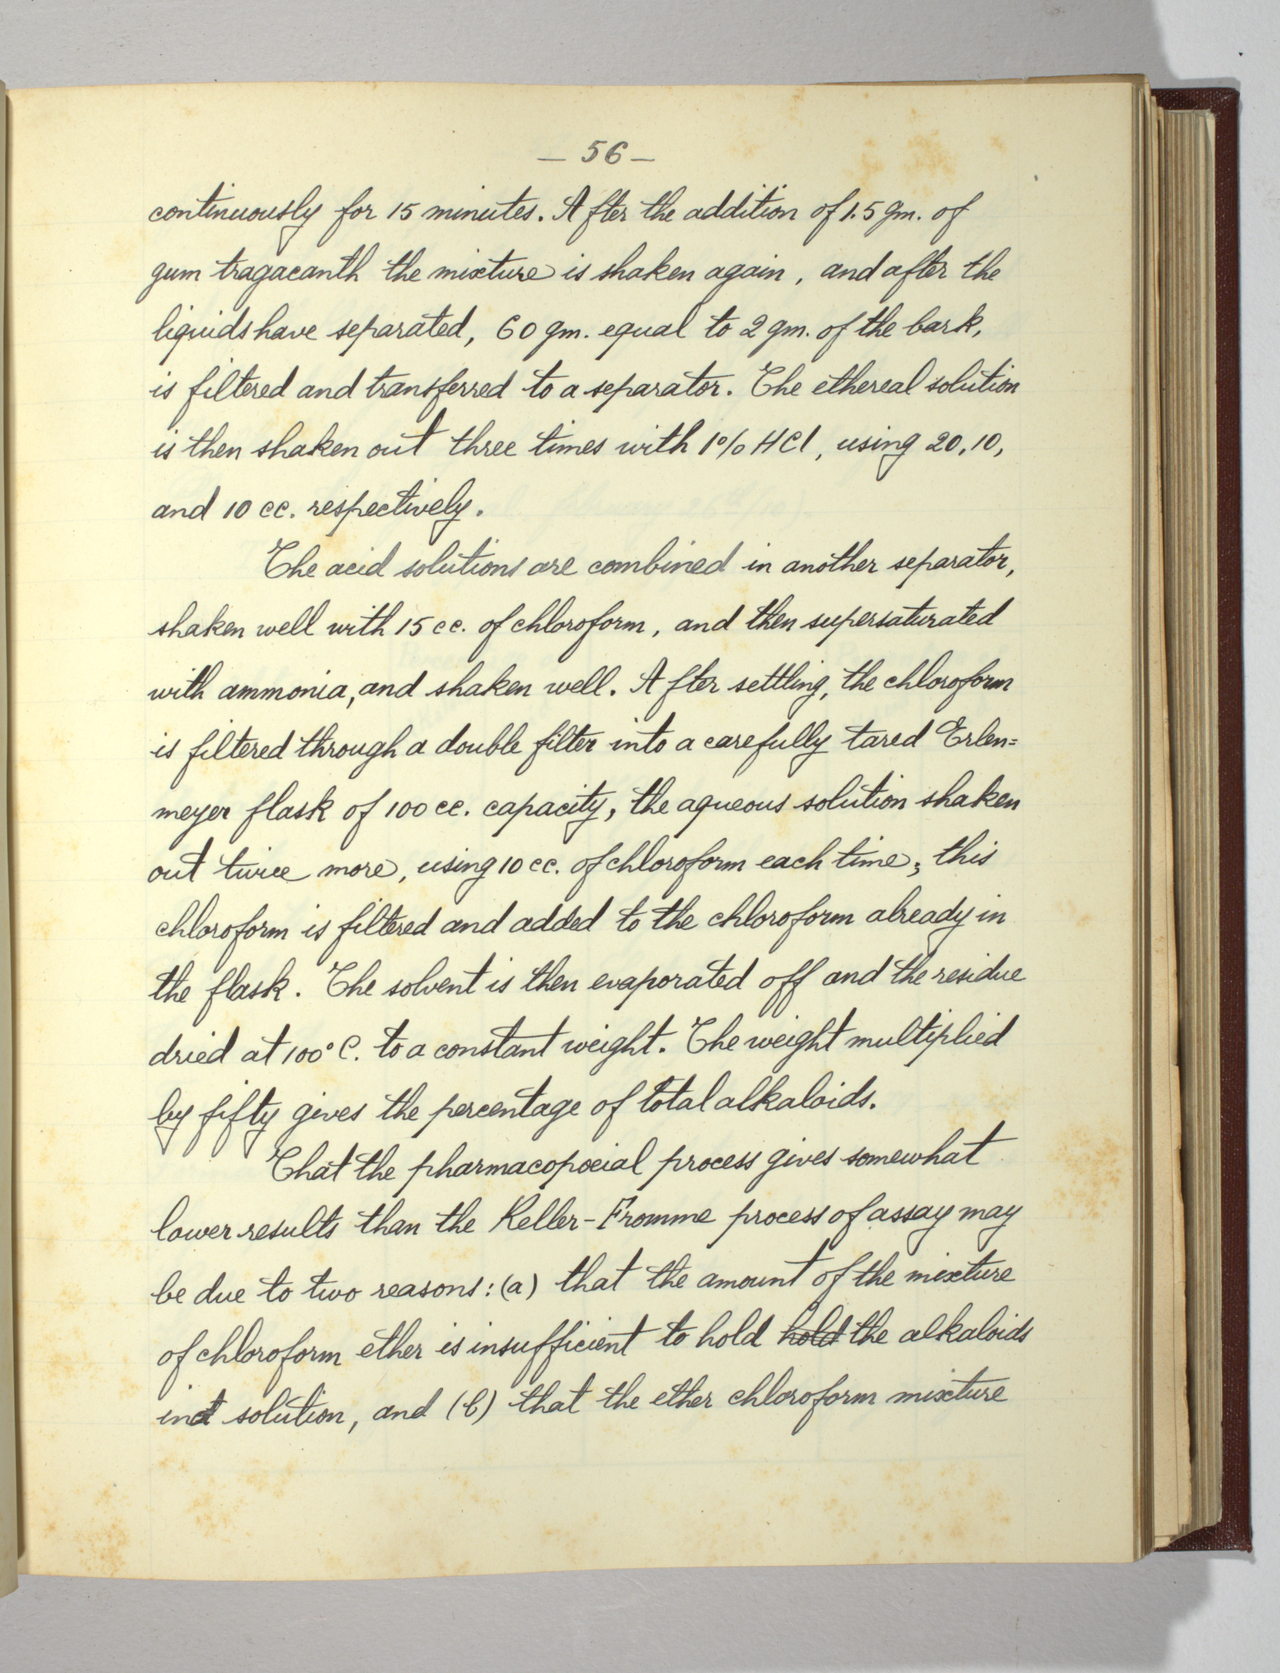 — 56 —
continuously for 15 minutes. After the addition of 1.5 gm. of
gum tragacanth the mixture is shaken again, and after the
liquids have separated, 60 gm. equal to 2 gm. of the bark,
is filtered and transferred to a separator. The ethereal solution
is then shaken out three times with 1% HCl, using 20, 10,
and 10 cc. respectively.
The acid solutions are combined in another separator,
shaken well with 15 cc. of chloroform, and then supersaturated
with ammonia, and shaken well. After settling, the chloroform
is filtered through a double filter into a carefully tared Erlen=
meyer flask of 100 cc. capacity, the aqueous solution shaken
out twice more, using 10 cc. of chloroform each time; this
chloroform is filtered and added to the chloroform already in
the flask. The solvent is then evaporated off and the residue
dried at 100° C. to a constant weight. The weight multiplied
by fifty gives the percentage of total alkaloids.
That the pharmacopoeial process gives somewhat
lower results than the Keller-Fromme process of assay may
be due to two reasons: (a) that the amount of the mixture
of chloroform ether is insufficient to hold hold the alkaloids
in solution, and (b) that the ether chloroform mixture